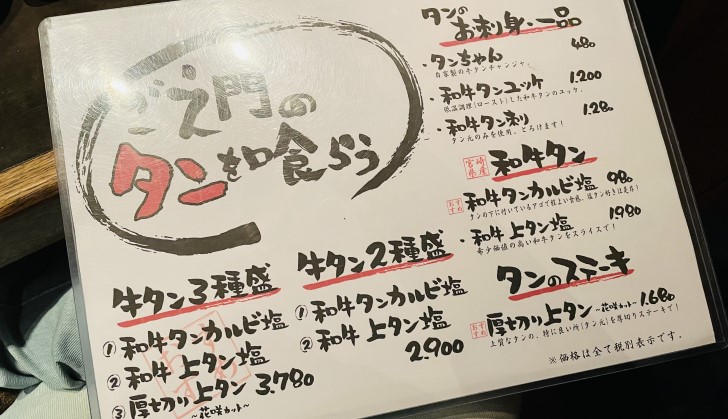 ごえ門の
タンを喰らう
タンの
お刺身・一品
・タンちゃん 480
自家製の牛タンチャンジャ。
・和牛タンユッケ 1.200
低温調理(ロースト)した和牛タンのユッケ。
・和牛タン刺り 1.280
タン元のみを使用。とろけます!
宮崎県産 和牛タン
おすすめ 和牛タンカルビ塩 980
タンの下に付いているアゴで程よい食感、塩タン好きは是非!
・和牛 上タン塩 1980
希少価値の高い和牛タンをスライスで!
タンのステーキ
おすすめ 厚切り上タン ~花咲カット~ 1.680
上質なタンの、特に良い所(タン元)を厚切りステーキで!
※価格は全て税別表示です。
牛タン3種盛
① 和牛タンカルビ塩
② 和牛 上タン塩
③ 厚切り上タン 3.780
~花咲カット~
おすすめ
牛タン2種盛
① 和牛タンカルビ塩
② 和牛 上タン塩
2.900